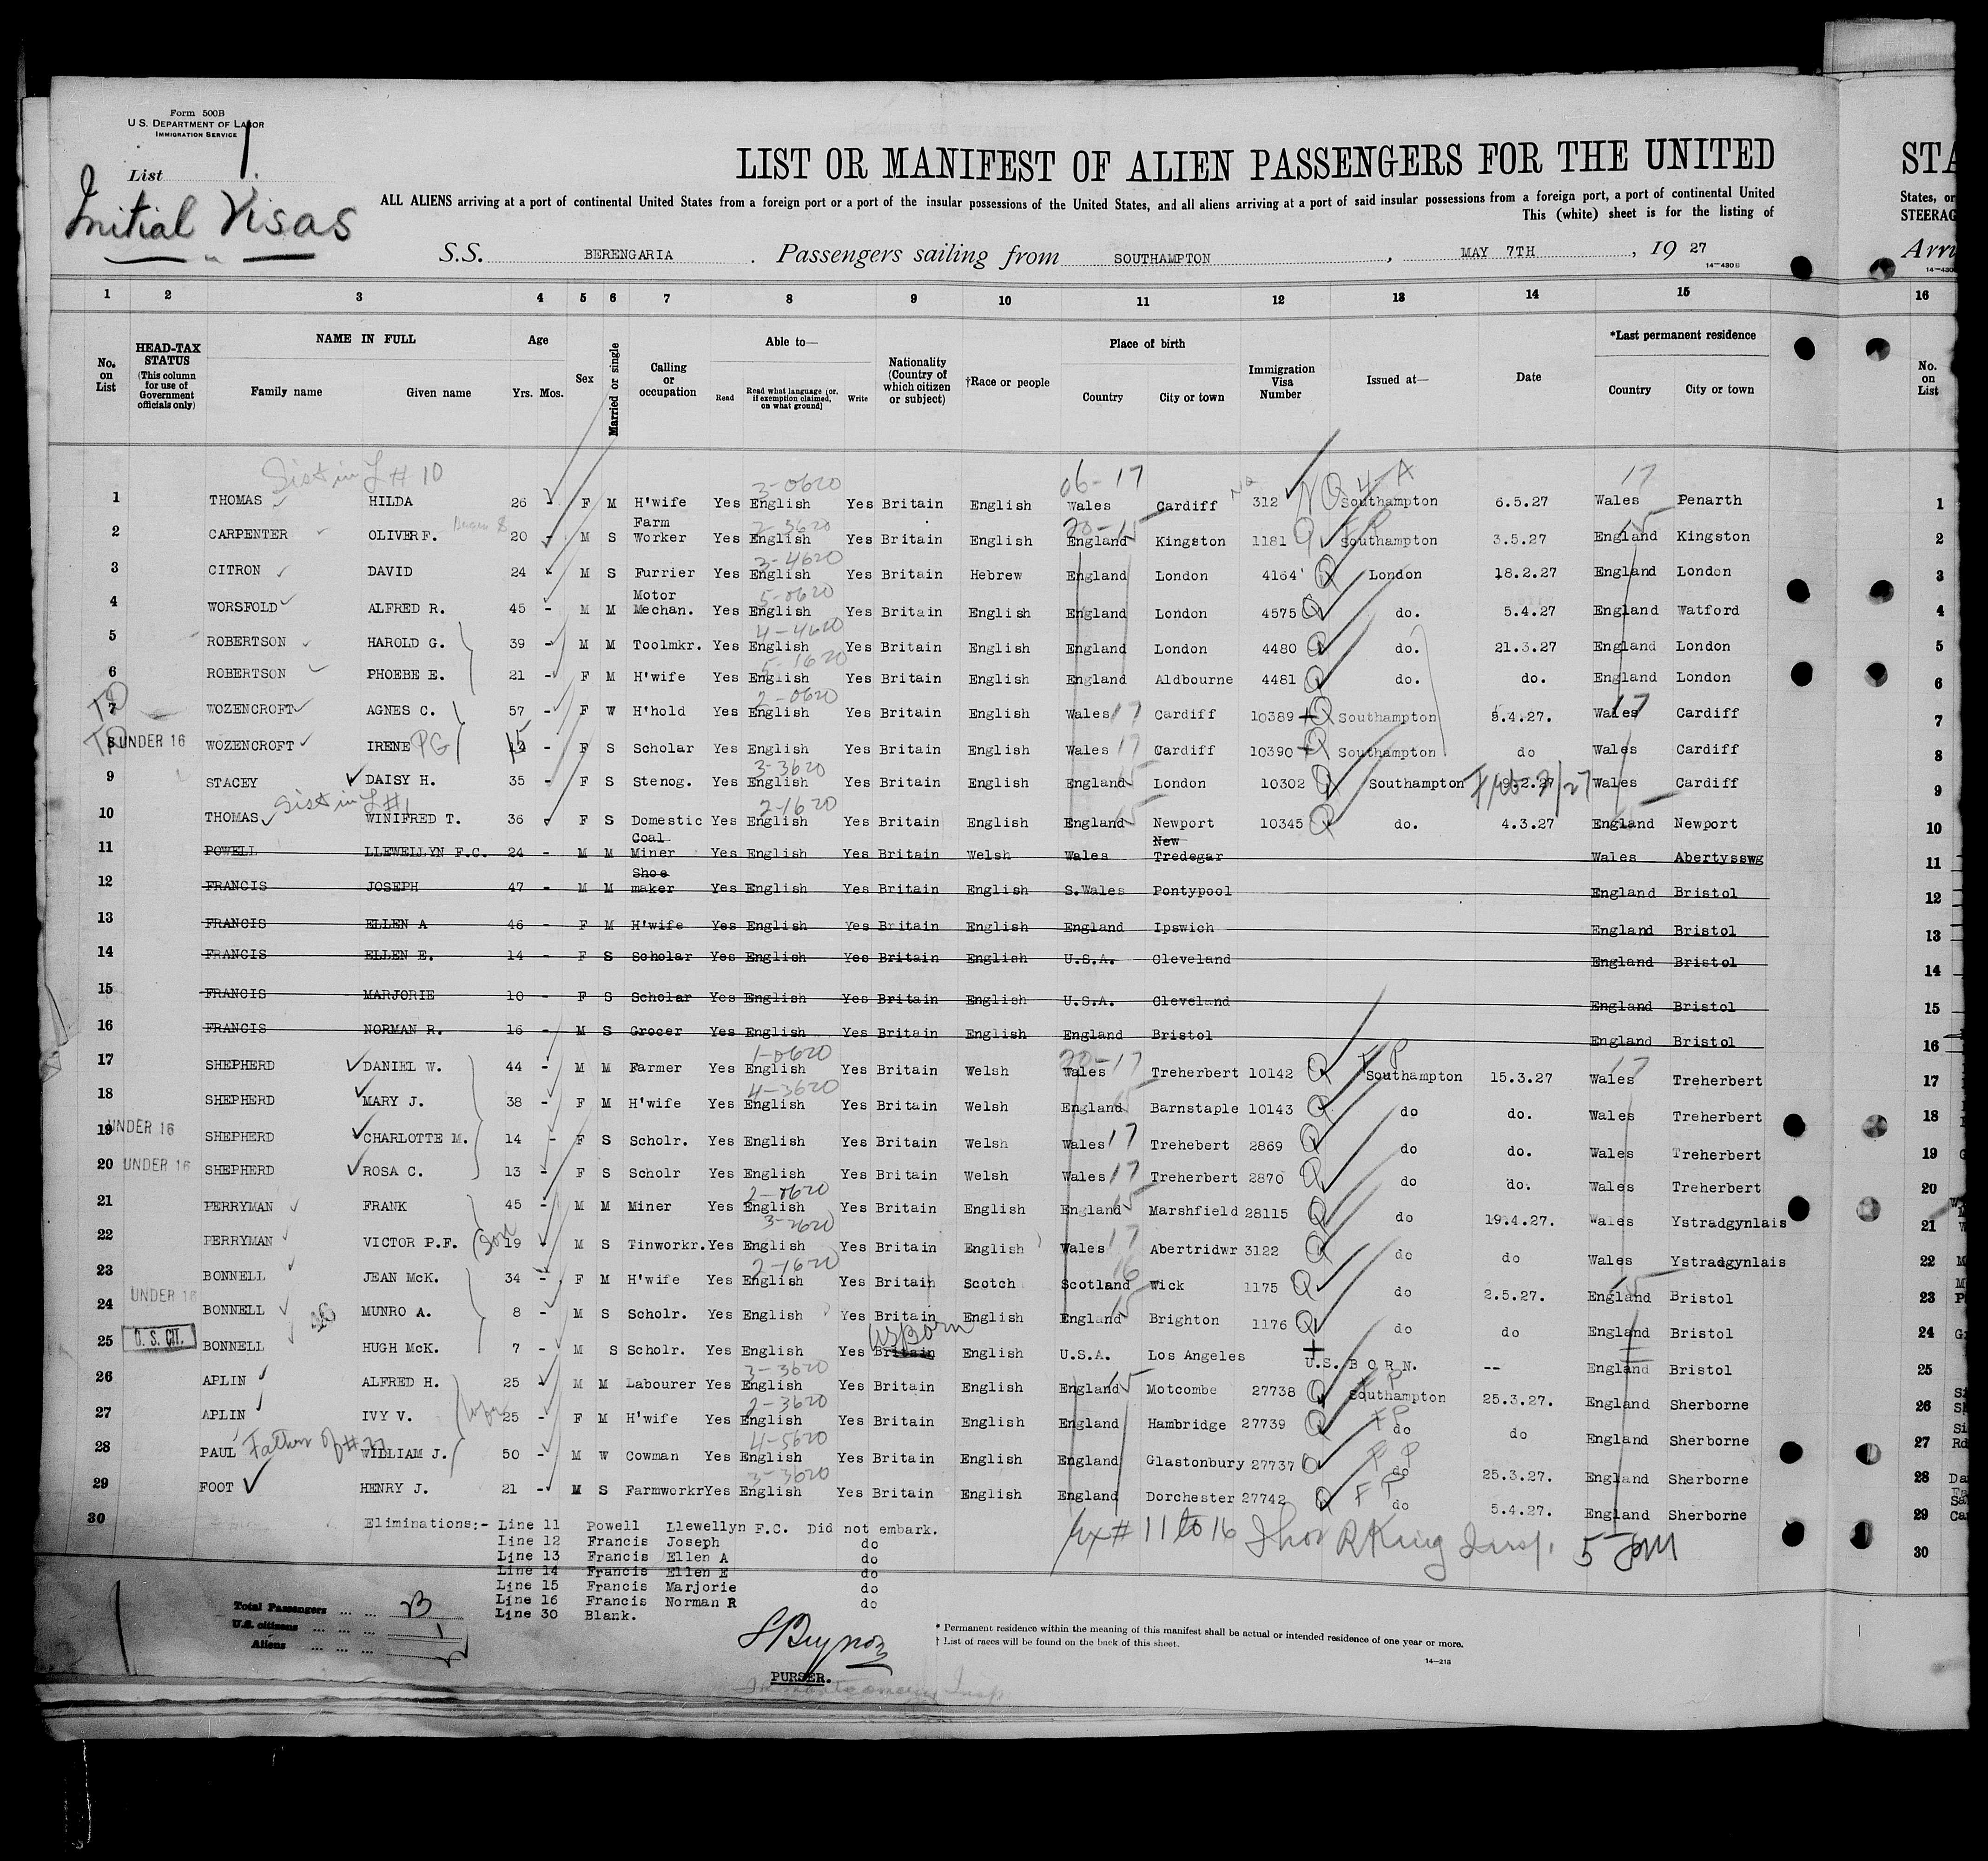 Form 500B
U.S. DEPARTMENT OF LABOR
IMMIGRATION SERVICE
List 1
Initial Visas
LIST OR MANIFEST OF ALIEN PASSENGERS FOR THE UNITED
STA
ALL ALIENS arriving at a port of continental United States from a foreign port or a port of the insular possessions of the United States, and all aliens arriving at a port of said insular possessions from a foreign port, a port of continental United
States, or
This (white) sheet is for the listing of
STEERAG
S.S. BERENGARIA. Passengers sailing from SOUTHAMPTON, MAY 7TH, 19 27
Arri
14-430B
1 2 3 4 5 6 7 8 9 10 11 12 13 14 15 16
No. on List
HEAD-TAX STATUS (This column for use of Government officials only)
NAME IN FULL
Family name Given name
Age
Yrs. Mos.
Sex
Married or single
Calling or occupation
Able to—
Read
Read what language [or, if exemption claimed, on what ground]
Write
Nationality (Country of which citizen or subject)
†Race or people
Place of birth
Country City or town
Immigration Visa Number
Issued at—
Date
*Last permanent residence
Country City or town
No. on List
Sist in L #10 3-0620 06-17 NQ 4-A 17
1 THOMAS HILDA 26 - F M H'wife Yes English Yes Britain English Wales Cardiff 312 Southampton 6.5.27 Wales Penarth 1
2 CARPENTER OLIVER F. 20 M S Farm Worker Yes English Yes Britain English England Kingston 1181 Southampton 3.5.27 England Kingston 2
3-4620
3 CITRON DAVID 24 M S Furrier Yes English Yes Britain Hebrew England London 4164 London 18.2.27 England London 3
5-0620
4 WORSFOLD ALFRED R. 45 - M M Motor Mechan. Yes English Yes Britain English England London 4575 do. 5.4.27 England Watford 4
4-4620
5 ROBERTSON HAROLD G. 39 - M M Toolmkr. Yes English Yes Britain English England London 4480 do. 21.3.27 England London 5
5-1620
6 ROBERTSON PHOEBE E. 21 - F M H'wife Yes English Yes Britain English England Aldbourne 4481 do. do. England London 6
2-0620
7 WOZENCROFT AGNES C. 57 - F W H'hold Yes English Yes Britain English Wales 17 Cardiff 10389 Southampton 8.4.27. Wales 17 Cardiff 7
8 UNDER 16 WOZENCROFT IRENE PG 15 - F S Scholar Yes English Yes Britain English Wales 17 Cardiff 10390 Southampton do Wales Cardiff 8
3-3620
9 STACEY DAISY H. 35 - F S Stenog. Yes English Yes Britain English England London 10302 Southampton Wales Cardiff 9
Sist in L #1 2-1620
10 THOMAS WINIFRED T. 36 F S Domestic Yes English Yes Britain English England Newport 10345 do. 4.3.27 England Newport 10
11 POWELL LLEWELLYN F.C. 24 - M M Coal Miner Yes English Yes Britain Welsh Wales New Tredegar Wales Abertysswg 11
12 FRANCIS JOSEPH 47 - M M Shoe maker Yes English Yes Britain English S.Wales Pontypool England Bristol 12
13 FRANCIS ELLEN A 46 - F M H'wife Yes English Yes Britain English England Ipswich England Bristol 13
14 FRANCIS ELLEN E. 14 - F S Scholar Yes English Yes Britain English U.S.A. Cleveland England Bristol 14
15 FRANCIS MARJORIE 10 - F S Scholar Yes English Yes Britain English U.S.A. Cleveland England Bristol 15
16 FRANCIS NORMAN R. 16 - M S Grocer Yes English Yes Britain English England Bristol England Bristol 16
1-0620
17 SHEPHERD DANIEL W. 44 - M M Farmer Yes English Yes Britain Welsh Wales Treherbert 10142 Southampton 15.3.27 Wales Treherbert 17
4-3620
18 SHEPHERD MARY J. 38 - F M H'wife Yes English Yes Britain Welsh England Barnstaple 10143 do do. Wales Treherbert 18
19 UNDER 16 SHEPHERD CHARLOTTE M. 14 - F S Scholr. Yes English Yes Britain Welsh Wales 17 Trehebert 2869 do do. Wales Treherbert 19
20 UNDER 16 SHEPHERD ROSA C. 13 - F S Scholr Yes English Yes Britain Welsh Wales 17 Treherbert 2870 do do. Wales Treherbert 20
2-0620
21 PERRYMAN FRANK 45 - M M Miner Yes English Yes Britain English England Marshfield 28115 do 19.4.27. Wales Ystradgynlais 21
3-2620
22 PERRYMAN VICTOR P.F. Son 19 M S Tinworkr. Yes English Yes Britain English Wales 17 Abertridwr 3122 do do Wales Ystradgynlais 22
2-1620
23 BONNELL JEAN McK. 34 - F M H'wife Yes English Yes Britain Scotch Scotland Wick 1175 do 2.5.27. England Bristol 23
24 UNDER 16 BONNELL MUNRO A. 8 - M S Scholr. Yes English Yes Britain English England Brighton 1176 do do England Bristol 24
US Born
25 U.S. CIT. BONNELL HUGH McK. 7 - M S Scholr. Yes English Yes Britain English U.S.A. Los Angeles U.S. BORN. -- England Bristol 25
3-3620
26 APLIN ALFRED H. 25 M M Labourer Yes English Yes Britain English England Motcombe 27738 Southampton 25.3.27. England Sherborne 26
2-3620
27 APLIN IVY V. wife 25 - F M H'wife Yes English Yes Britain English England Hambridge 27739 do do England Sherborne 27
4-5620
28 PAUL Father of #27 WILLIAM J. 50 - M W Cowman Yes English Yes Britain English England Glastonbury 27737 do 25.3.27. England Sherborne 28
3-3620
29 FOOT HENRY J. 21 - M S Farmworkr Yes English Yes Britain English England Dorchester 27742 do 5.4.27. England Sherborne 29
30 Eliminations:- Line 11 Powell Llewellyn F.C. Did not embark. 30
Line 12 Francis Joseph do
Line 13 Francis Ellen A do
Line 14 Francis Ellen E do
Line 15 Francis Marjorie do
Line 16 Francis Norman R do
Line 30 Blank.
# 11 to 16 Thos R King Insp.
Total Passengers
U.S. citizens 1
Aliens
PURSER.
* Permanent residence within the meaning of this manifest shall be actual or intended residence of one year or more.
† List of races will be found on the back of this sheet.
14-218